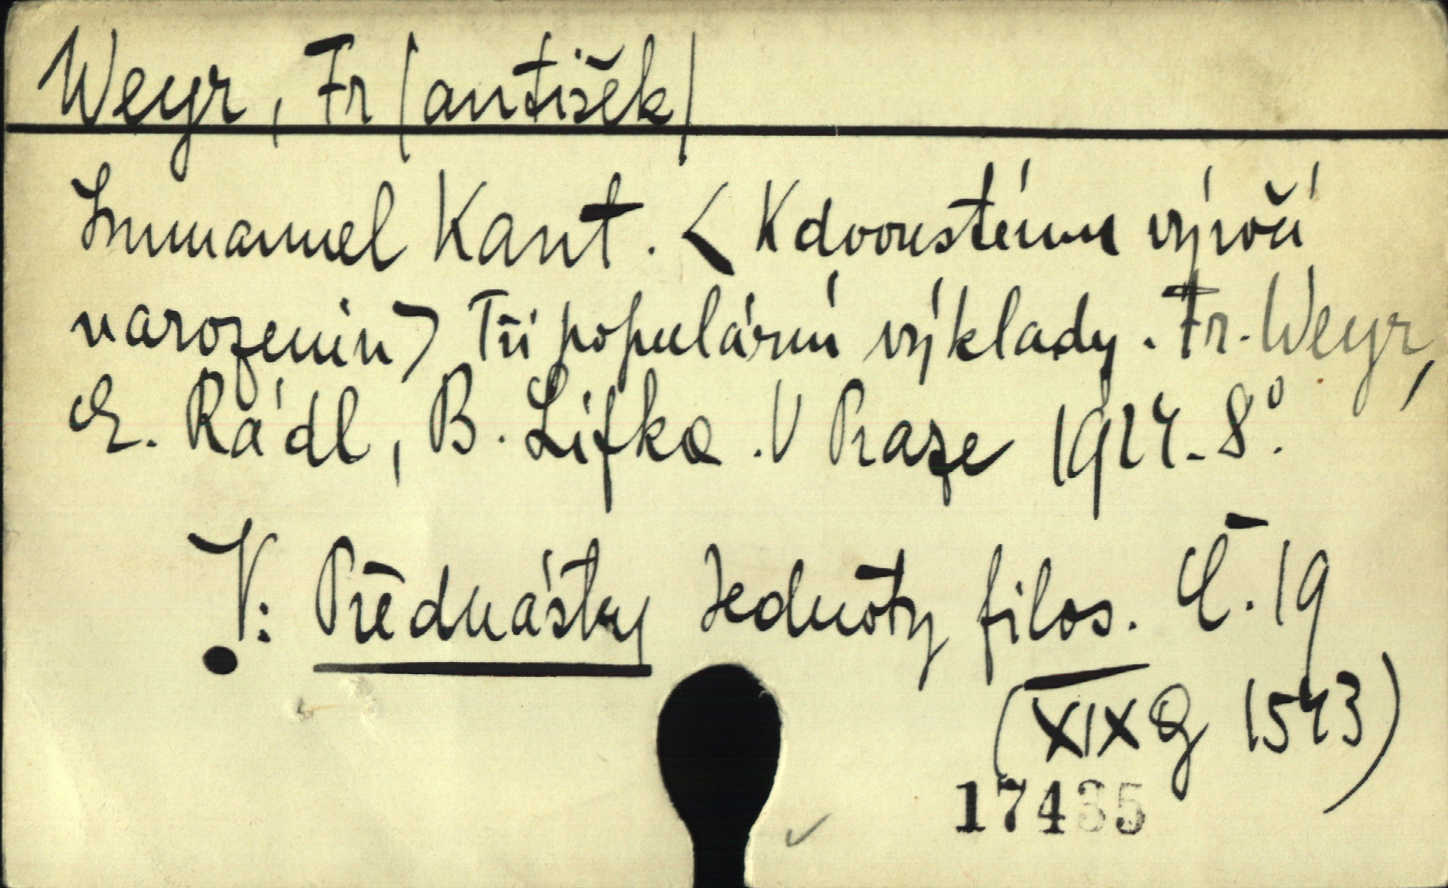 Weyr, Fr(antišek)
Immanuel Kant. < K dvoustému výročí
narozenin> Tři populární výklady. Fr. Weyr,
E. Rádl, B. Lifka. V Praze 1924. 8°.
V: Přednášky Jednoty filos. Č. 19
(XIX G 1543)
17435